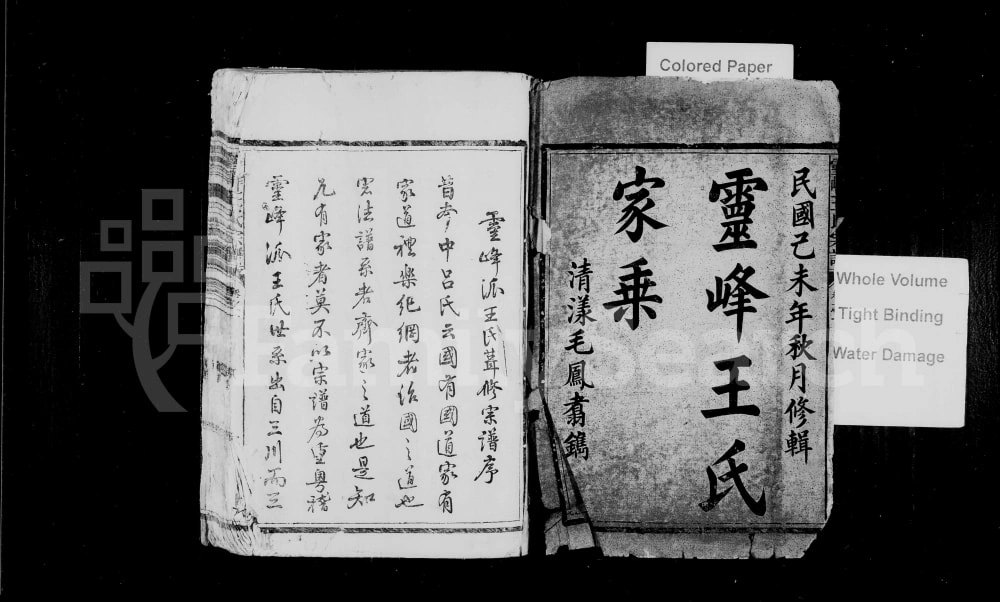 Colored Paper
Whole Volume
Tight Binding
Water Damage
民國己未年秋月修輯
靈峰王氏
家乘
清漾毛鳳翥鐫
靈峰派王氏葺修宗譜序
昔參中呂氏云國有國道家有
家道禮樂紀綱者治國之道也
宏法譜系者齊家之道也是知
凡有家者莫不以宗譜為重粵稽
靈峰派王氏世系出自三川而三
FamilySearch